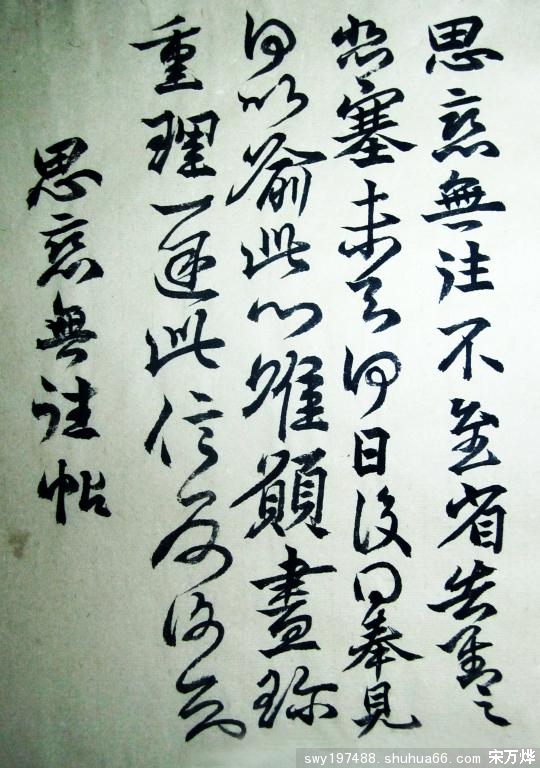 思戀無往不至省告對之
悲塞未知何日復得奉見
何以喻此心惟願盡珍
重理遲此信反復知
思戀無往帖
swy197488.shuhua66.com 宋万烨